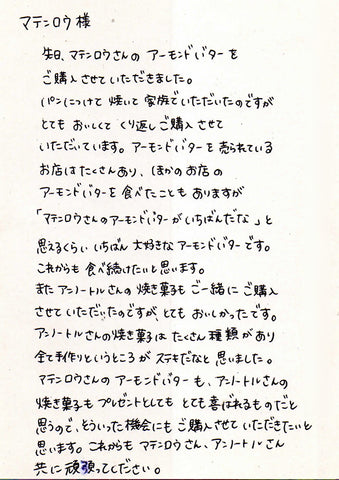 マテンロウ様
先日、マテンロウさんの アーモンドバターを
ご購入させていただきました。
パンにつけて 焼いて 家族でいただいたのですが
とても おいしくて くり返しご購入させて
いただいています。アーモンドバターを 売られている
お店はたくさんあり、ほかのお店の
アーモンドバターを 食べたことも ありますが
「マテンロウさんのアーモンドバターがいちばんだな」と
思えるくらい いちばん 大好きな アーモンドバターです。
これからも 食べ続けたいと思います。
また アンノートルさんの 焼き菓子も ご一緒に ご購入
させて いただいたのですが、とても おいしかったです。
アンノートルさんの焼き菓子は たくさん 種類が あり
全て手作りというところが ステキだなと 思いました。
マテンロウさんの アーモンドバターも、アンノートルさんの
焼き菓子も プレゼントとしても とても 喜ばれるものだと
思うので、そういった機会にも ご購入させて いただきたいと
思います。これからも マテンロウさん、アンノートルさん
共に 頑張ってください。